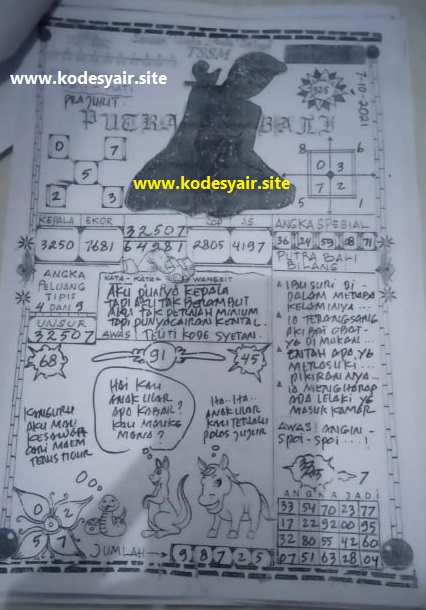 TSSM
www.kodesyair.site
PRAJURIT
PUTRA BALI
325
7-10-2021
0 7
5
2 3
www.kodesyair.site
8 6
0 3
7 2
5 1
KEPALA EKOR
3250 7681
32507
64981
COP AS
2805 4197
ANGKA SPESIAL
36 24 59 08 71
PUTRA BALI
BILANG
ANGKA
PELUANG
TIPIS
4 DAN 9
UNSUR
32507
KATA-KATA WANGSIT
AKU PUNYA KEPALA
TAPI AKU TAK BERAMBUT
AKU TAK PERNAH MINUM
TAPI PUNYA CAIRAN KENTAL.
AWAS! IKUTI KODE SYETAN.
IBU SURI DI
DALAM METABA
KELAMINYA...
IA TERANGSANG
AKIBAT OBAT
YG DI MAKAN...
ENTAH ADA YG
MERASUKI
PIKIRANNYA
IA MENGHARAP
ADA LELAKI YG
MASUK KAMAR
AWAS! ANGIN-
SPOI-SPOI...!
68
91
45
HAI KAU
ANAK ULAR
ADA KABAR?
KAU MAU KE
MANA?
HA..HA..
ANAK ULAR
KAU TERLALU
POLOS JUJUR
KANGURU
AKU MAU
KESAWAH
CARI MAEM
TERUS TIDUR
7
0 2
5 7
JUMLAH
9 8 7 2 5
ANGKA JADI
33 54 70 23 77
17 22 92 00 95
32 80 55 42 60
07 51 63 28 04